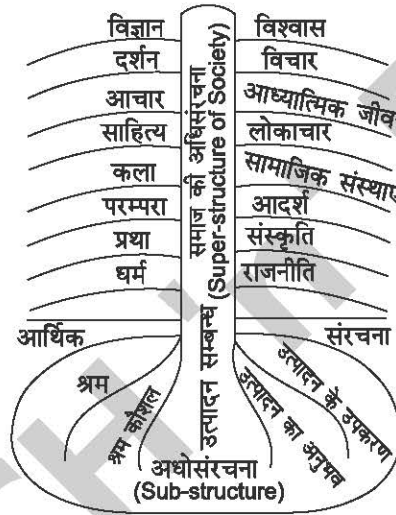 विज्ञान
दर्शन
आचार
साहित्य
कला
परम्परा
प्रथा
धर्म
समाज की अधिसंरचना
(Super-structure of Society)
विश्वास
विचार
आध्यात्मिक जीव
लोकाचार
सामाजिक संस्थाए
आदर्श
संस्कृति
राजनीति
आर्थिक
संरचना
उत्पादन सम्बन्ध
श्रम
श्रम कौशल
उत्पादन का अनुभव
उत्पादन के उपकरण
अधोसंरचना
(Sub-structure)